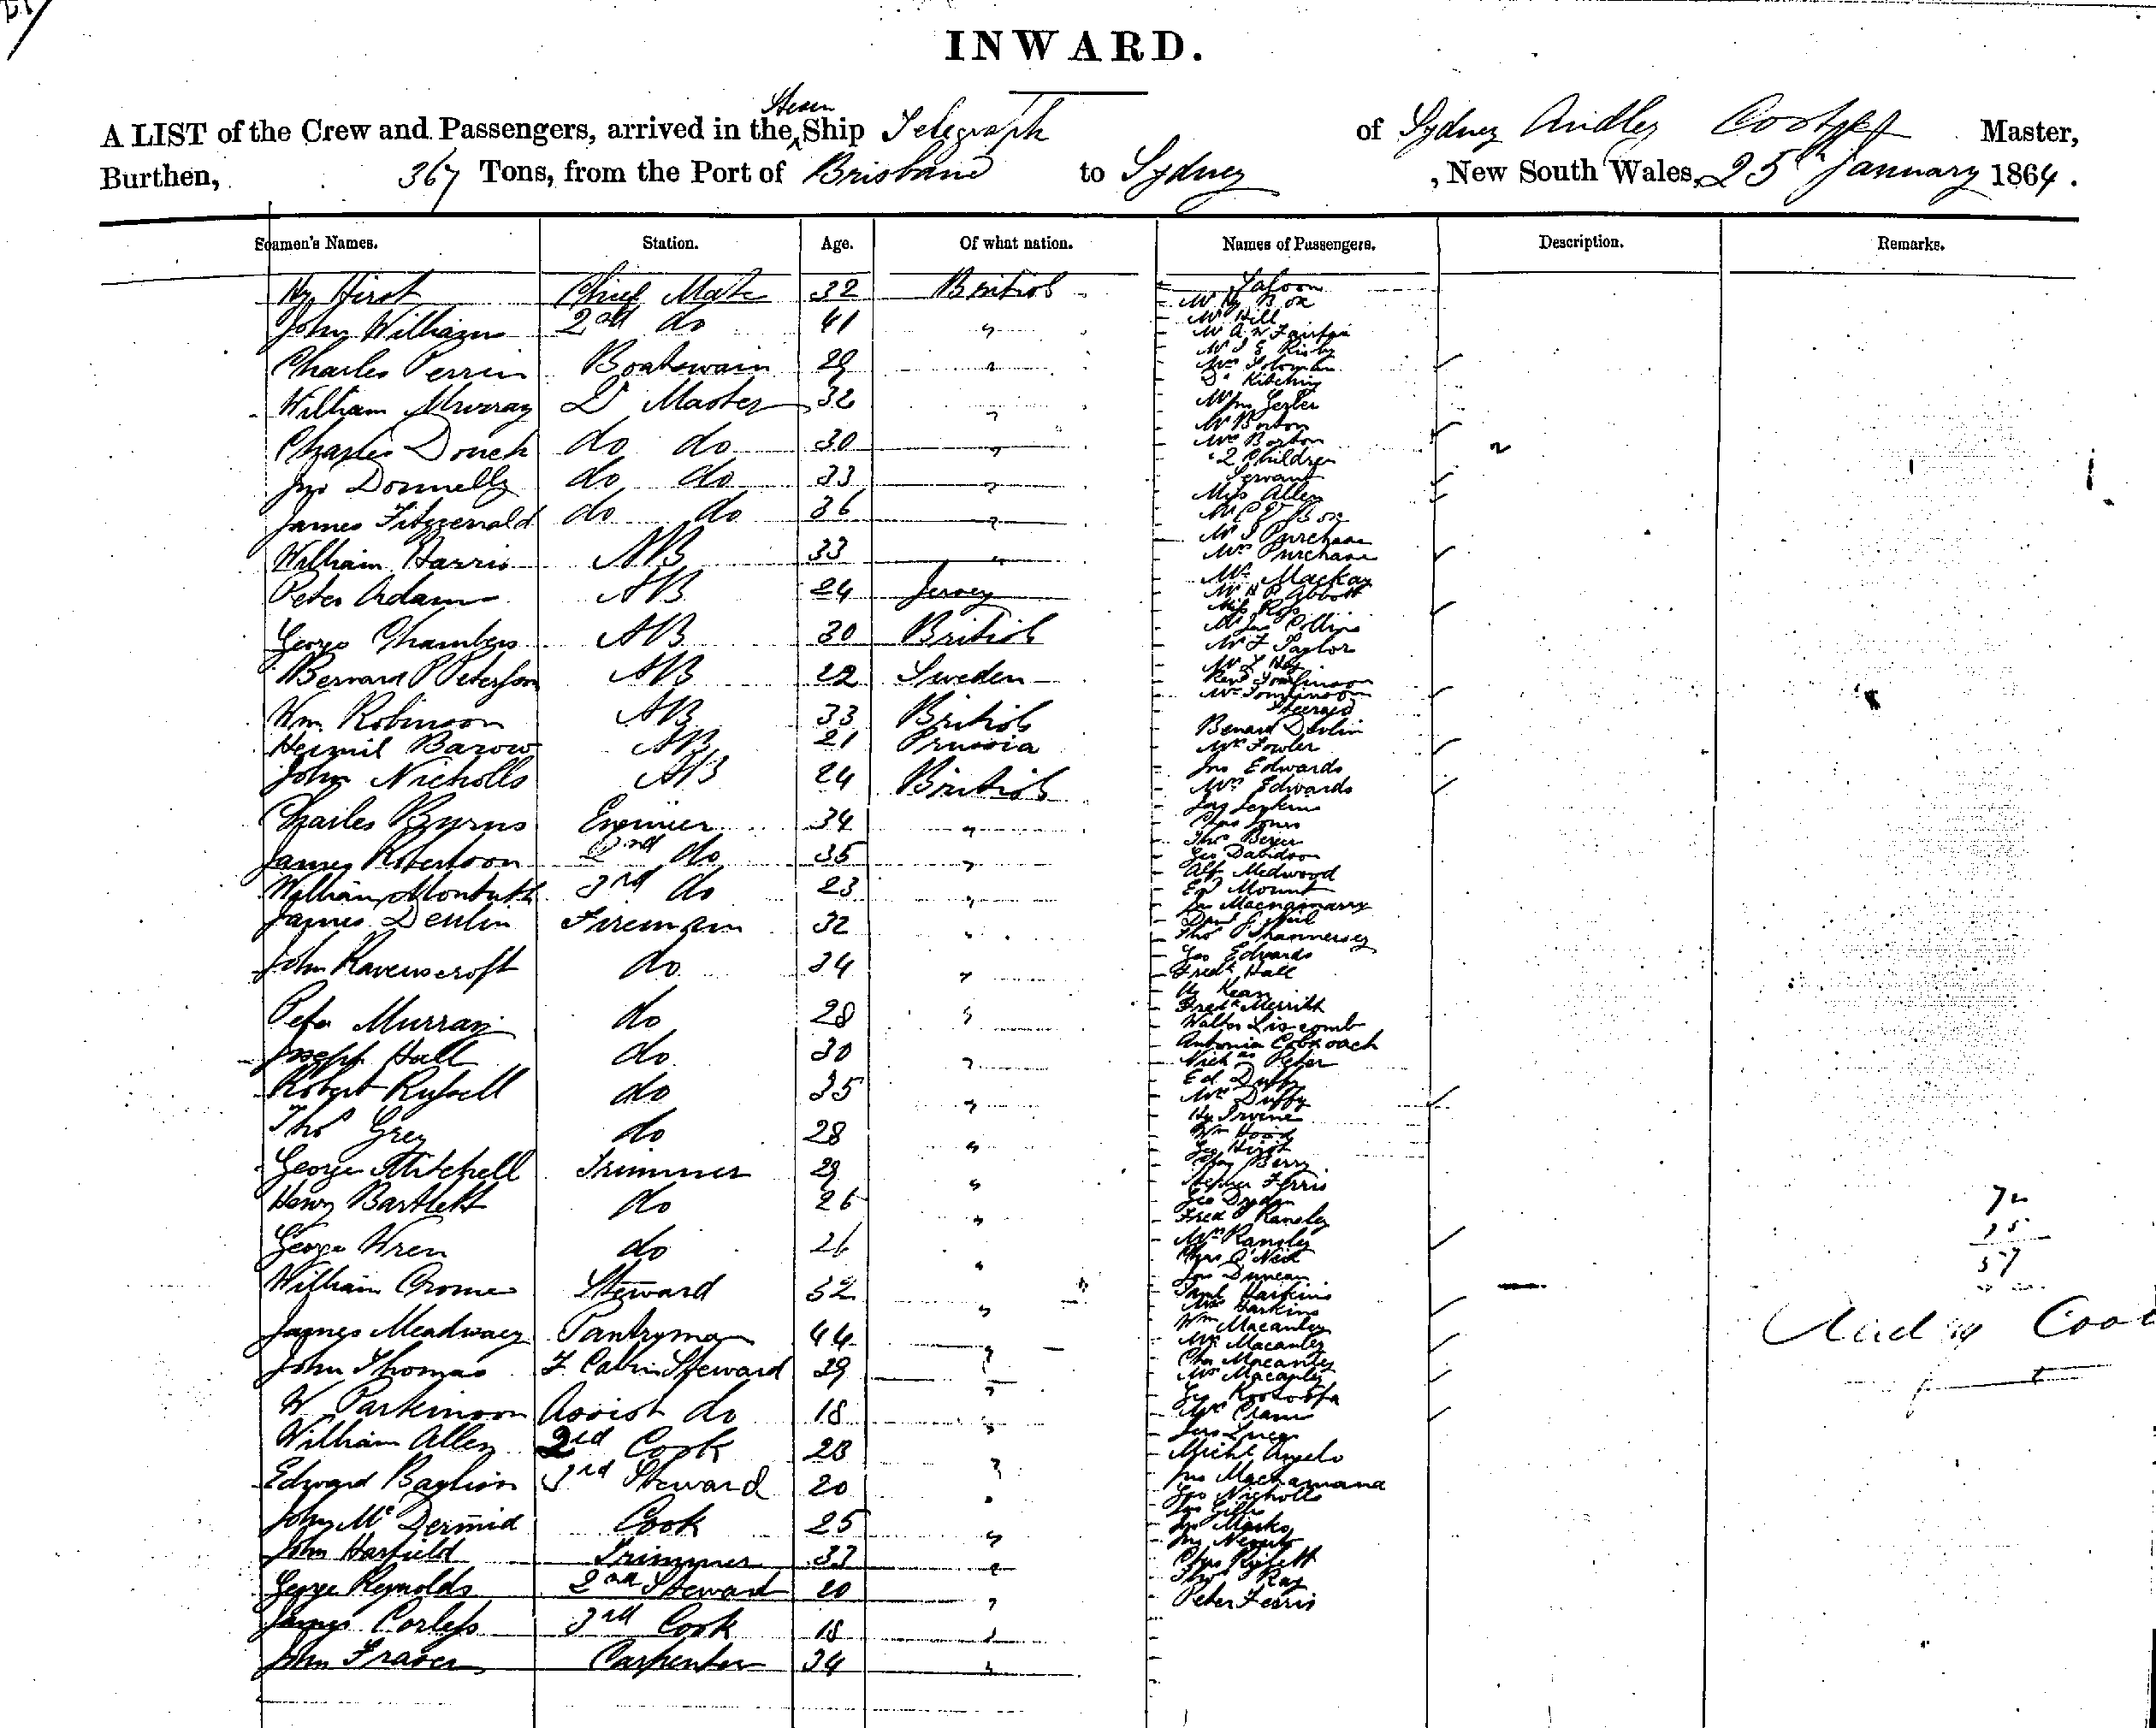 INWARD.
A LIST of the Crew and Passengers, arrived in the Steam Ship Telegraph of Sydney Audley Coote Master,
Burthen, 367 Tons, from the Port of Brisbane to Sydney, New South Wales, 25th January 1864.
Seamen's Names. Station. Age. Of what nation. Names of Passengers. Description. Remarks.
Hy Hirst Chief Mate 32 British
John Williams 2nd do 41 "
Charles Perrin Boatswain 29 "
William Murray Qr Master 32 "
Charles Douch do do 30 "
Jno Donnelly do do 33 "
James Fitzgerrald do do 36 "
William Harris AB 33 "
Peter Adams AB 24 Jersey
George Chambers AB 30 British
Bernard Peterson AB 22 Sweden
Wm Robinson AB 33 British
Barow AB 21 Prussia
John Nicholls AB 24 British
Charles Byrns Engineer 34 "
James Robertson 2nd do 35 "
William Montuith 3rd do 23 "
James Deulin Fireman 32 "
John Ravenscroft do 34 "
Peter Murray do 28 "
Joseph Hall do 30 "
Robert Russell do 35 "
Thos Grey do 28 "
George Mitchell Trimmer 29 "
Henry Bartlett do 26 "
George Wren do 26 "
William Crome Steward 32 "
James Meadway Pantryman 44 "
John Thomas F Cabin Steward 39 "
W Parkinson Assist do 18 "
William Allen 2nd Cook 28 "
Edward 3rd Steward 20 "
John McDermid Cook 25 "
John Harfield Trimmer 33 "
George Reynolds 2nd Steward 20 "
James Corless 3rd Cook 18 "
John Fraser Carpenter 34 "
Saloon
Mr Hy Box
Mr Hill
Mr A W Fairfax
Mr J E
Mrs Soloman
Dr Kitching
Mr Jno
Mr Barton
Mrs Barton
" 2 Children
Servant
Miss Allen
Mr C V Box
Mr J Purchase
Mrs Purchase
Mr Mackay
Mr H P Abbott
Miss Ross
Mr Jas Collins
Mr F Taylor
Mr L Hay
Revd Tomlinson
Mrs Tomlinson
Steerage
Benard Devlin
Mrs Fowler
Jno Edwards
Mrs Edwards
Jas Jenkins
Chas Jones
Thos
Geo Davidson
Alf Medwood
Ed Mount
Jno Macnamarra
Danl
Thos O'Shannersey
Geo Edwards
Fredk Hall
Hy Kean
Fredk Merritt
Walter Liscomb
Antonia
Nichas Peter
Ed Duffy
Mrs Duffy
Hy Irvine
Wm Hood
Geo Hirst
Chas Berry
Stephen Ferris
Geo Dryden
Fred Ransley
Mrs Ransley
Chas O'Neil
Jas Duncan
Saml Harkins
Mrs Harkins
Wm Macauley
Mrs Macauley
Chas Macauley
Mrs Macauley
Geo
Mrs Crane
Jas
Michl Angelo
Jno Machamana
Geo Nicholls
Jas Gillis
Jno Marks
Jno
Chas Russell
Thos J Ray
Peter Ferris
72
15
57
Audley Coote